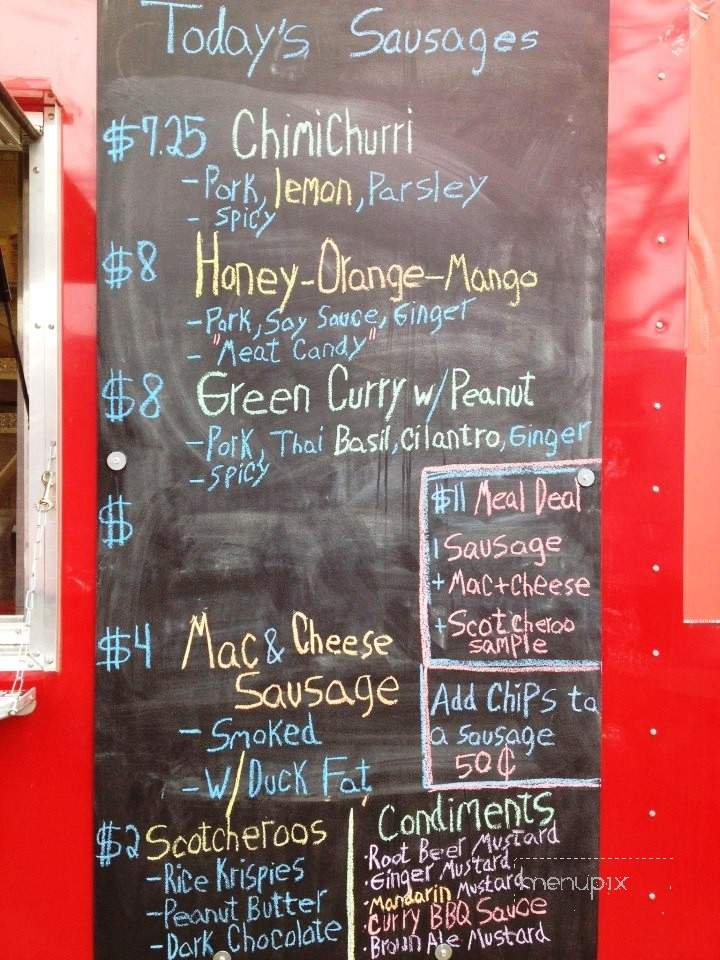 Today's Sausages
$7.25 Chimichurri
- Pork, lemon, Parsley
- Spicy
$8 Honey-Orange-Mango
- Pork, Soy Sauce, Ginger
- "Meat Candy"
$8 Green Curry w/ Peanut
- Pork, Thai Basil, Cilantro, Ginger
- Spicy
$
$11 Meal Deal
1 Sausage
+ Mac+cheese
+ Scotcheroo
sample
$4 Mac & Cheese
Sausage
- Smoked
- w/ Duck Fat
Add Chips to
a sausage
50¢
$2 Scotcheroos
- Rice Krispies
- Peanut Butter
- Dark Chocolate
Condiments
· Root Beer Mustard
· Ginger Mustard
· Mandarin Mustard
· Curry BBQ Sauce
· Brown Ale Mustard
menupix